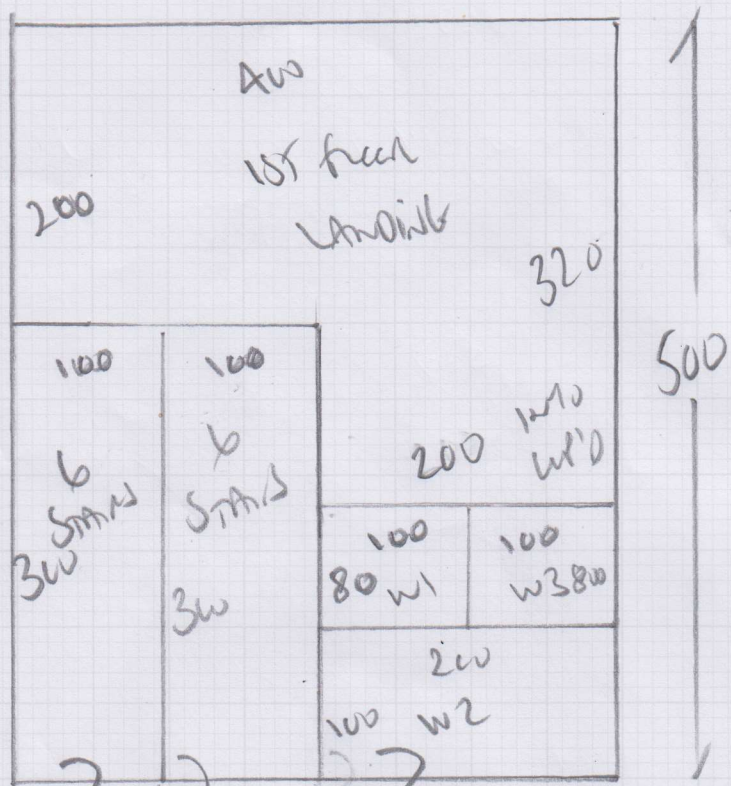 400
1ST FLOOR
LANDING
200
320
500
100
100
6
STAIRS
300
6
STAIRS
300
200
INTO
WP'D
100
80 W1
100
W3 80
200
100 W2